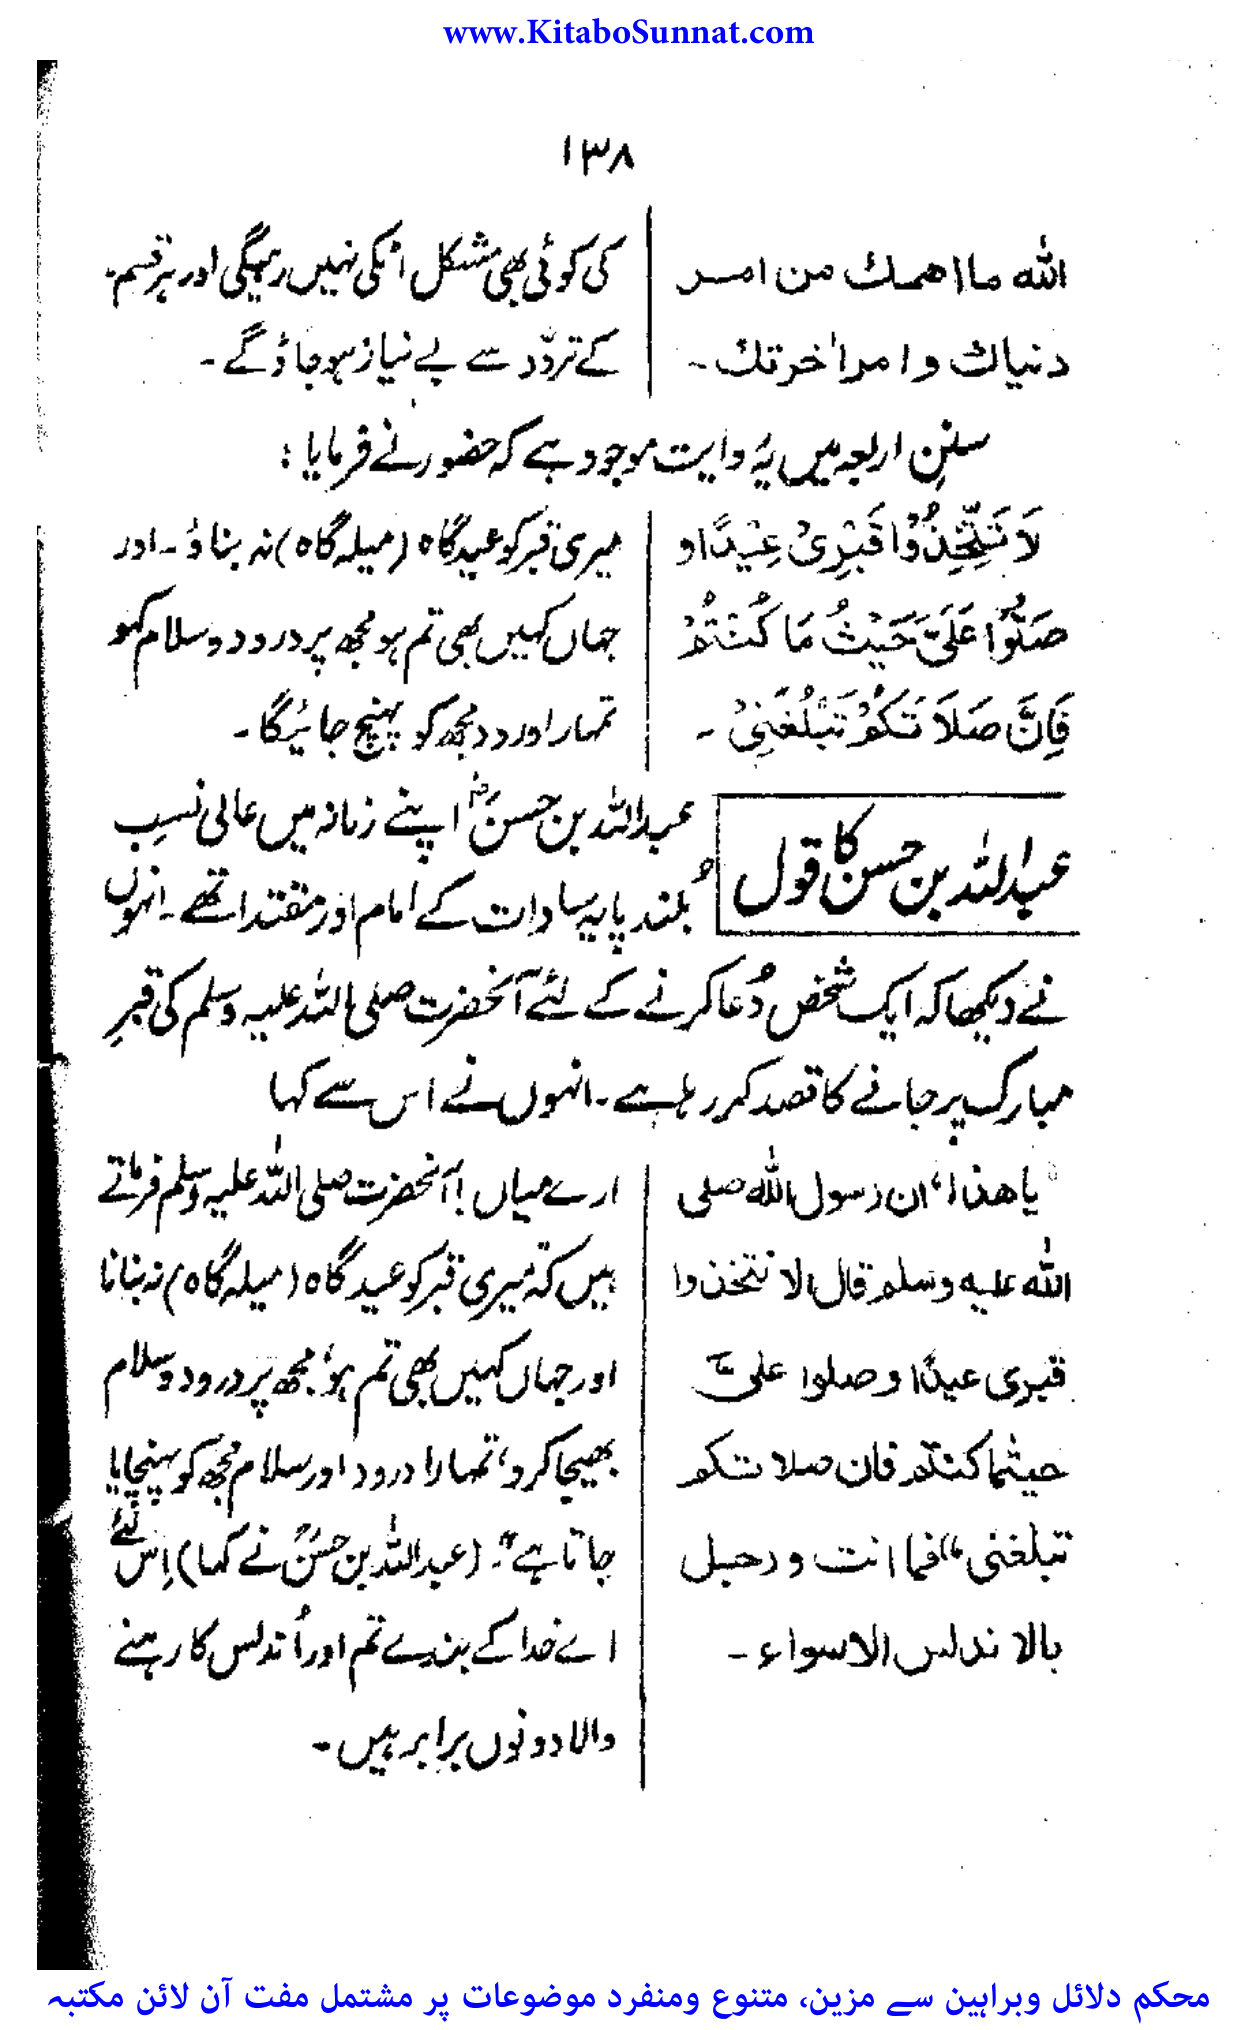 www.KitaboSunnat.com
۱۳۸
الله ما اهمك من امر
دنیاك و امر اٰخرتك ۔
کی کوئی بھی مشکل اٹکی نہیں رہیگی اور ہر قسم
کے تردّد سے بے نیاز ہو جاؤ گے ۔
سننِ اربعہ میں یہ روایت موجود ہے کہ حضور نے فرمایا :
لَا تَتَّخِذُوْا قَبْرِیْ عِیْدًا و
صَلُّوْا عَلَیَّ حَیْثُ مَا کُنْتُمْ
فَاِنَّ صَلَا تَکُمْ تَبْلُغُنِیْ ۔
میری قبر کو عیدگاہ (میلہ گاہ) نہ بناؤ ۔ اور
جہاں کہیں بھی تم ہو مجھ پر درود و سلام کہو
تمہارا درود مجھ کو پہنچ جائیگا ۔
عبداللہ بن حسن کا قول
عبداللہ بن حسنؓ اپنے زمانہ میں عالی نسب
بُلند پایہ سادات کے امام اور مقتدا تھے ۔ انہوں
نے دیکھا کہ ایک شخص دُعا کرنے کے لئے آنحضرت صلی اللہ علیہ وسلم کی قبرِ
مبارک پر جانے کا قصد کر رہا ہے ۔ انہوں نے اس سے کہا
یا هذا، ان رسول الله صلی
الله علیه وسلم قال لا تتخذوا
قبری عیدًا و صلوا علیّ
حیثما کنتم فان صلا تکم
تبلغنی“ فما انت و رجل
بالا ندلس الا سواء ۔
ارے میاں ! آنحضرت صلی اللہ علیہ وسلم فرماتے
ہیں کہ ”میری قبر کو عید گاہ (میلہ گاہ) نہ بنانا
اور جہاں کہیں بھی تم ہو، مجھ پر درود و سلام
بھیجا کرو، تمہارا درود اور سلام مجھ کو پہنچایا
جاتا ہے“۔ (عبداللہ بن حسنؓ نے کہا) اِس لئے
اے خدا کے بندے تم اور اُندلس کا رہنے
والا دونوں برابر ہیں ۔
محکم دلائل وبراہین سے مزین، متنوع ومنفرد موضوعات پر مشتمل مفت آن لائن مکتبہ